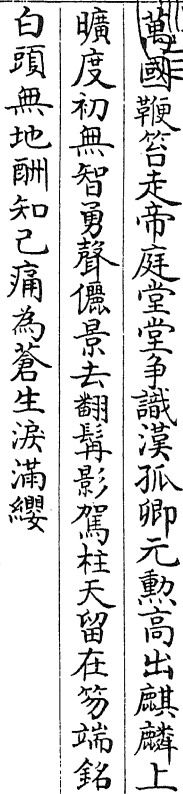 萬國鞭笞走帝庭堂堂爭識漢孤卿元勲高出麒麟上
曠度初無智勇聲儷景去翻髯影駕柱天留在笏端銘
白頭無地酬知己痛為蒼生淚滿纓